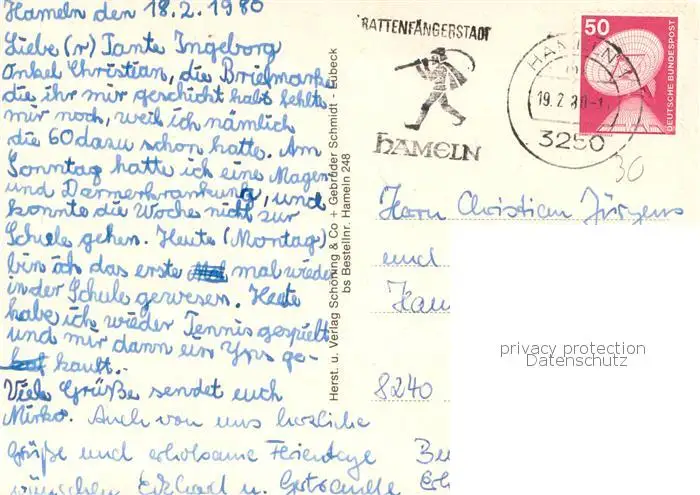 Hameln den 18.2.1980
Liebe(r) Tante Ingeborg
Onkel Christian, die Briefmarke
die ihr mir geschickt habt fehlte
mir noch, weil ich nämlich
die 60 dazu schon hatte. Am
Sonntag hatte ich eine Magen-
und Darmerkrankung, und
konnte die Woche nicht zur
Schule gehen. Heute (Montag)
bin ich das erste mal wieder
in der Schule gewesen. Heute
habe ich wieder Tennis gespielt
und mir dann ein Yps ge-
kauft.-
Viele Grüße sendet euch
Mirko. Auch von uns herzliche
Grüße und erholsame Feientage
wünschen Eckhard u.
Herst. u. Verlag Schöning & Co + Gebrüder Schmidt - Lübeck
bs Bestellnr. Hameln 248
RATTENFÄNGERSTADT
HAMELN
HAMELN 1
19.2.80-1
3250
50
DEUTSCHE BUNDESPOST
30
Herrn Christian Jürgens
und
8240
privacy protection
Datenschutz